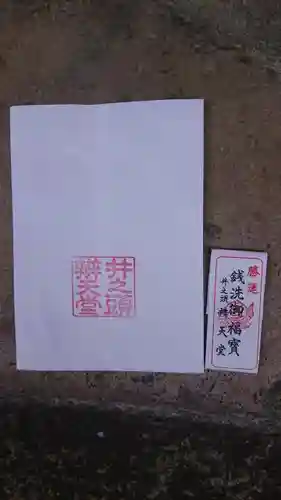 井之頭
辨天堂
勝運
銭洗御福寳
井之頭 辨天堂